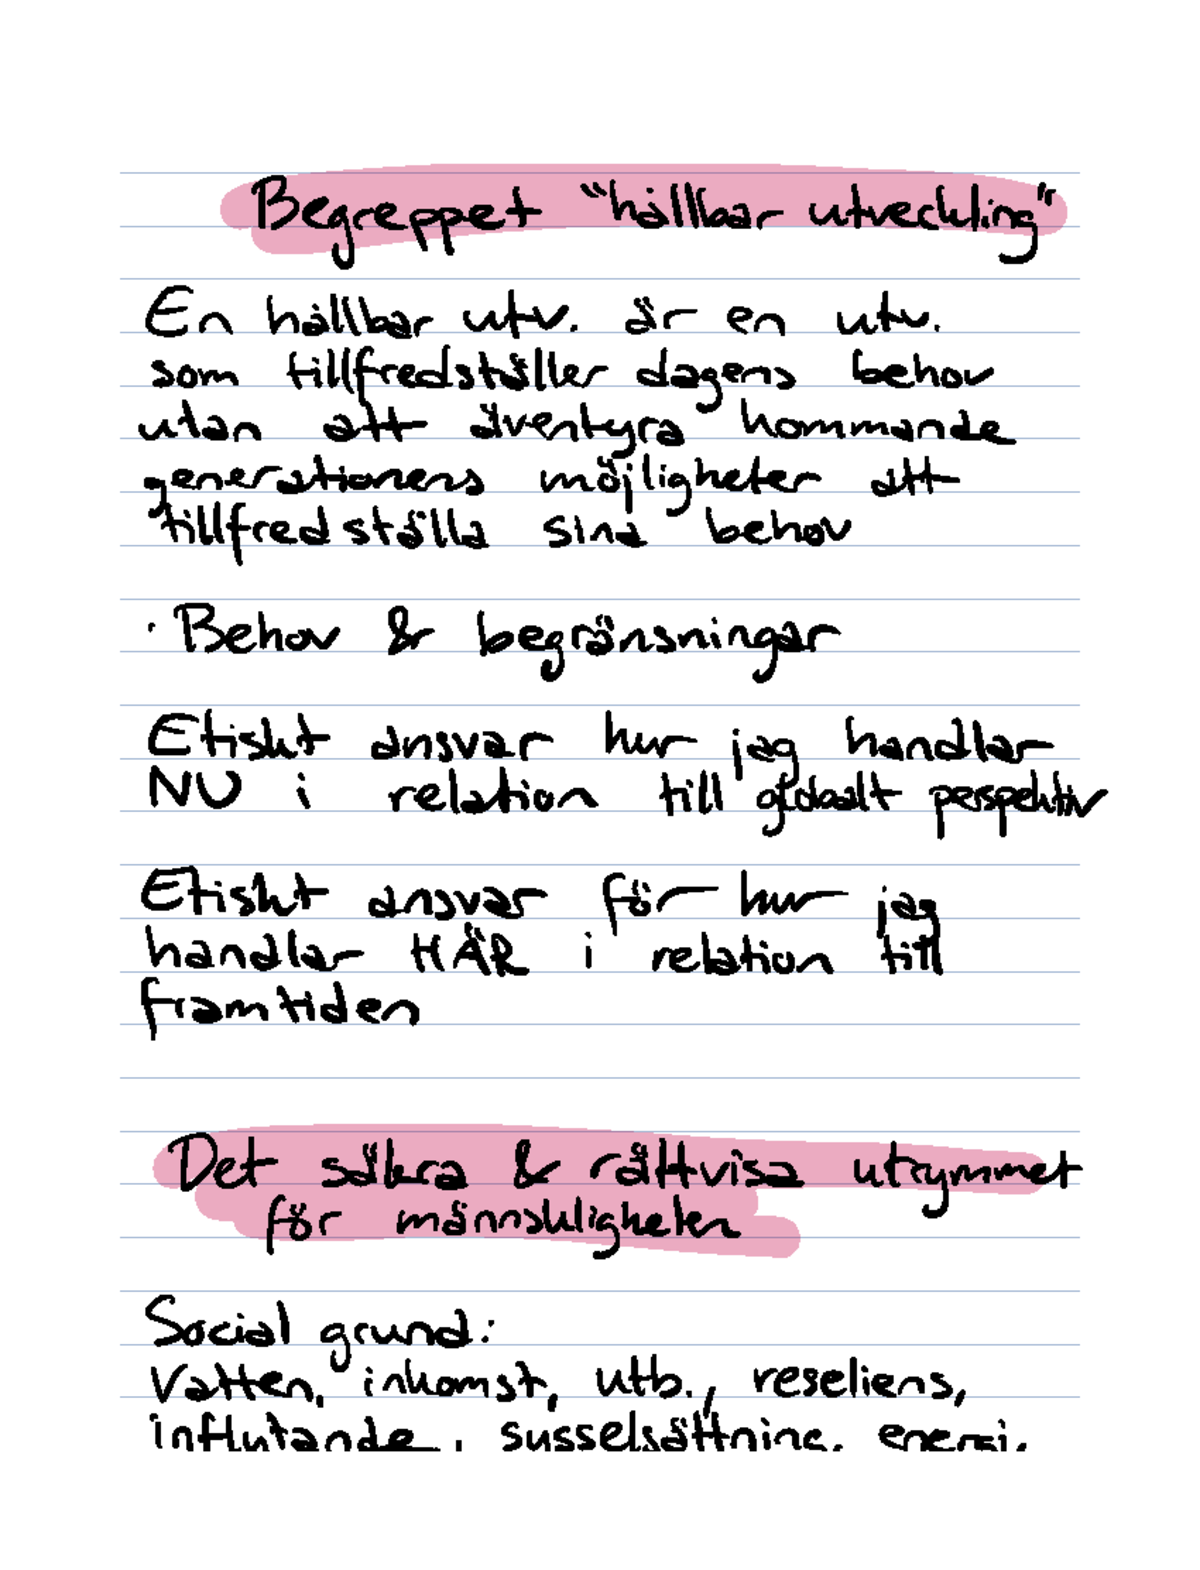 Begreppet "hållbar utveckling"
En hållbar utv. är en utv.
som tillfredställer dagens behov
utan att äventyra kommande
generationens möjligheter att
tillfredställa sina behov
· Behov & begränsningar
Etiskt ansvar hur jag handlar
NU i relation till globalt perspektiv
Etiskt ansvar för hur jag
handlar HÄR i relation till
framtiden
Det säkra & rättvisa utrymmet
för männskligheten
Social grund:
Vatten, inkomst, utb., reseliens,
inflytande, susselsättning, energi,